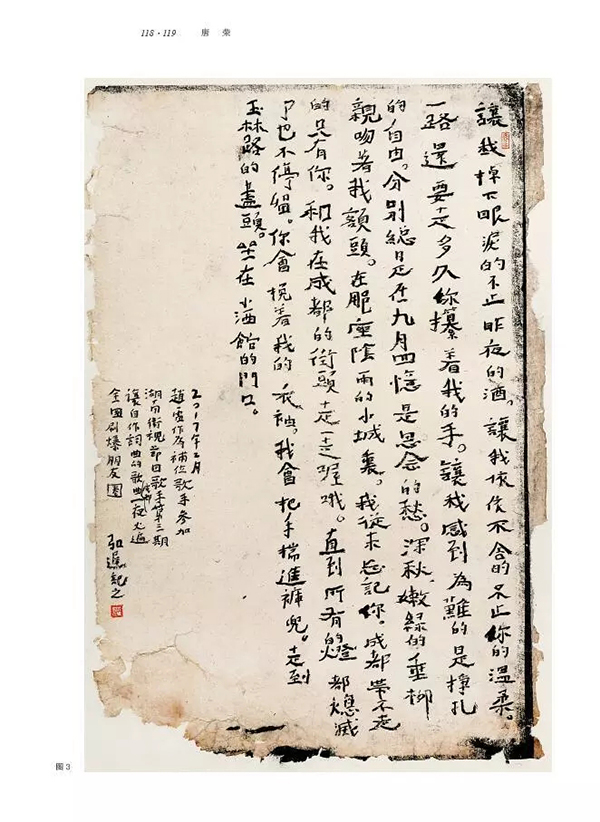 118 · 119 唐 荣
讓我掉下眼淚的不止昨夜的酒。讓我依依不舍的不止你的溫柔。
一路還要走多久你攥着我的手。讓我感到為難的是掙扎
的自由。分別總是在九月回憶是思念的愁。深秋嫩綠的垂柳
親吻著我額頭。在那座陰雨的小城裏。我從未忘記你。成都帶不走
的只有你。和我在成都的街頭走一走喔哦。直到所有的燈都熄滅
了也不停留。你會挽着我的衣袖。我會把手揣進褲兜。走到
玉林路的盡頭。坐在小酒館的門口。
2017年二月
趙雷作為補位歌手參加
湖南衛視節目歌手第三期
讓自作詞曲的歌曲成都一夜火遍
全國刷爆朋友圈
紀之
圖3